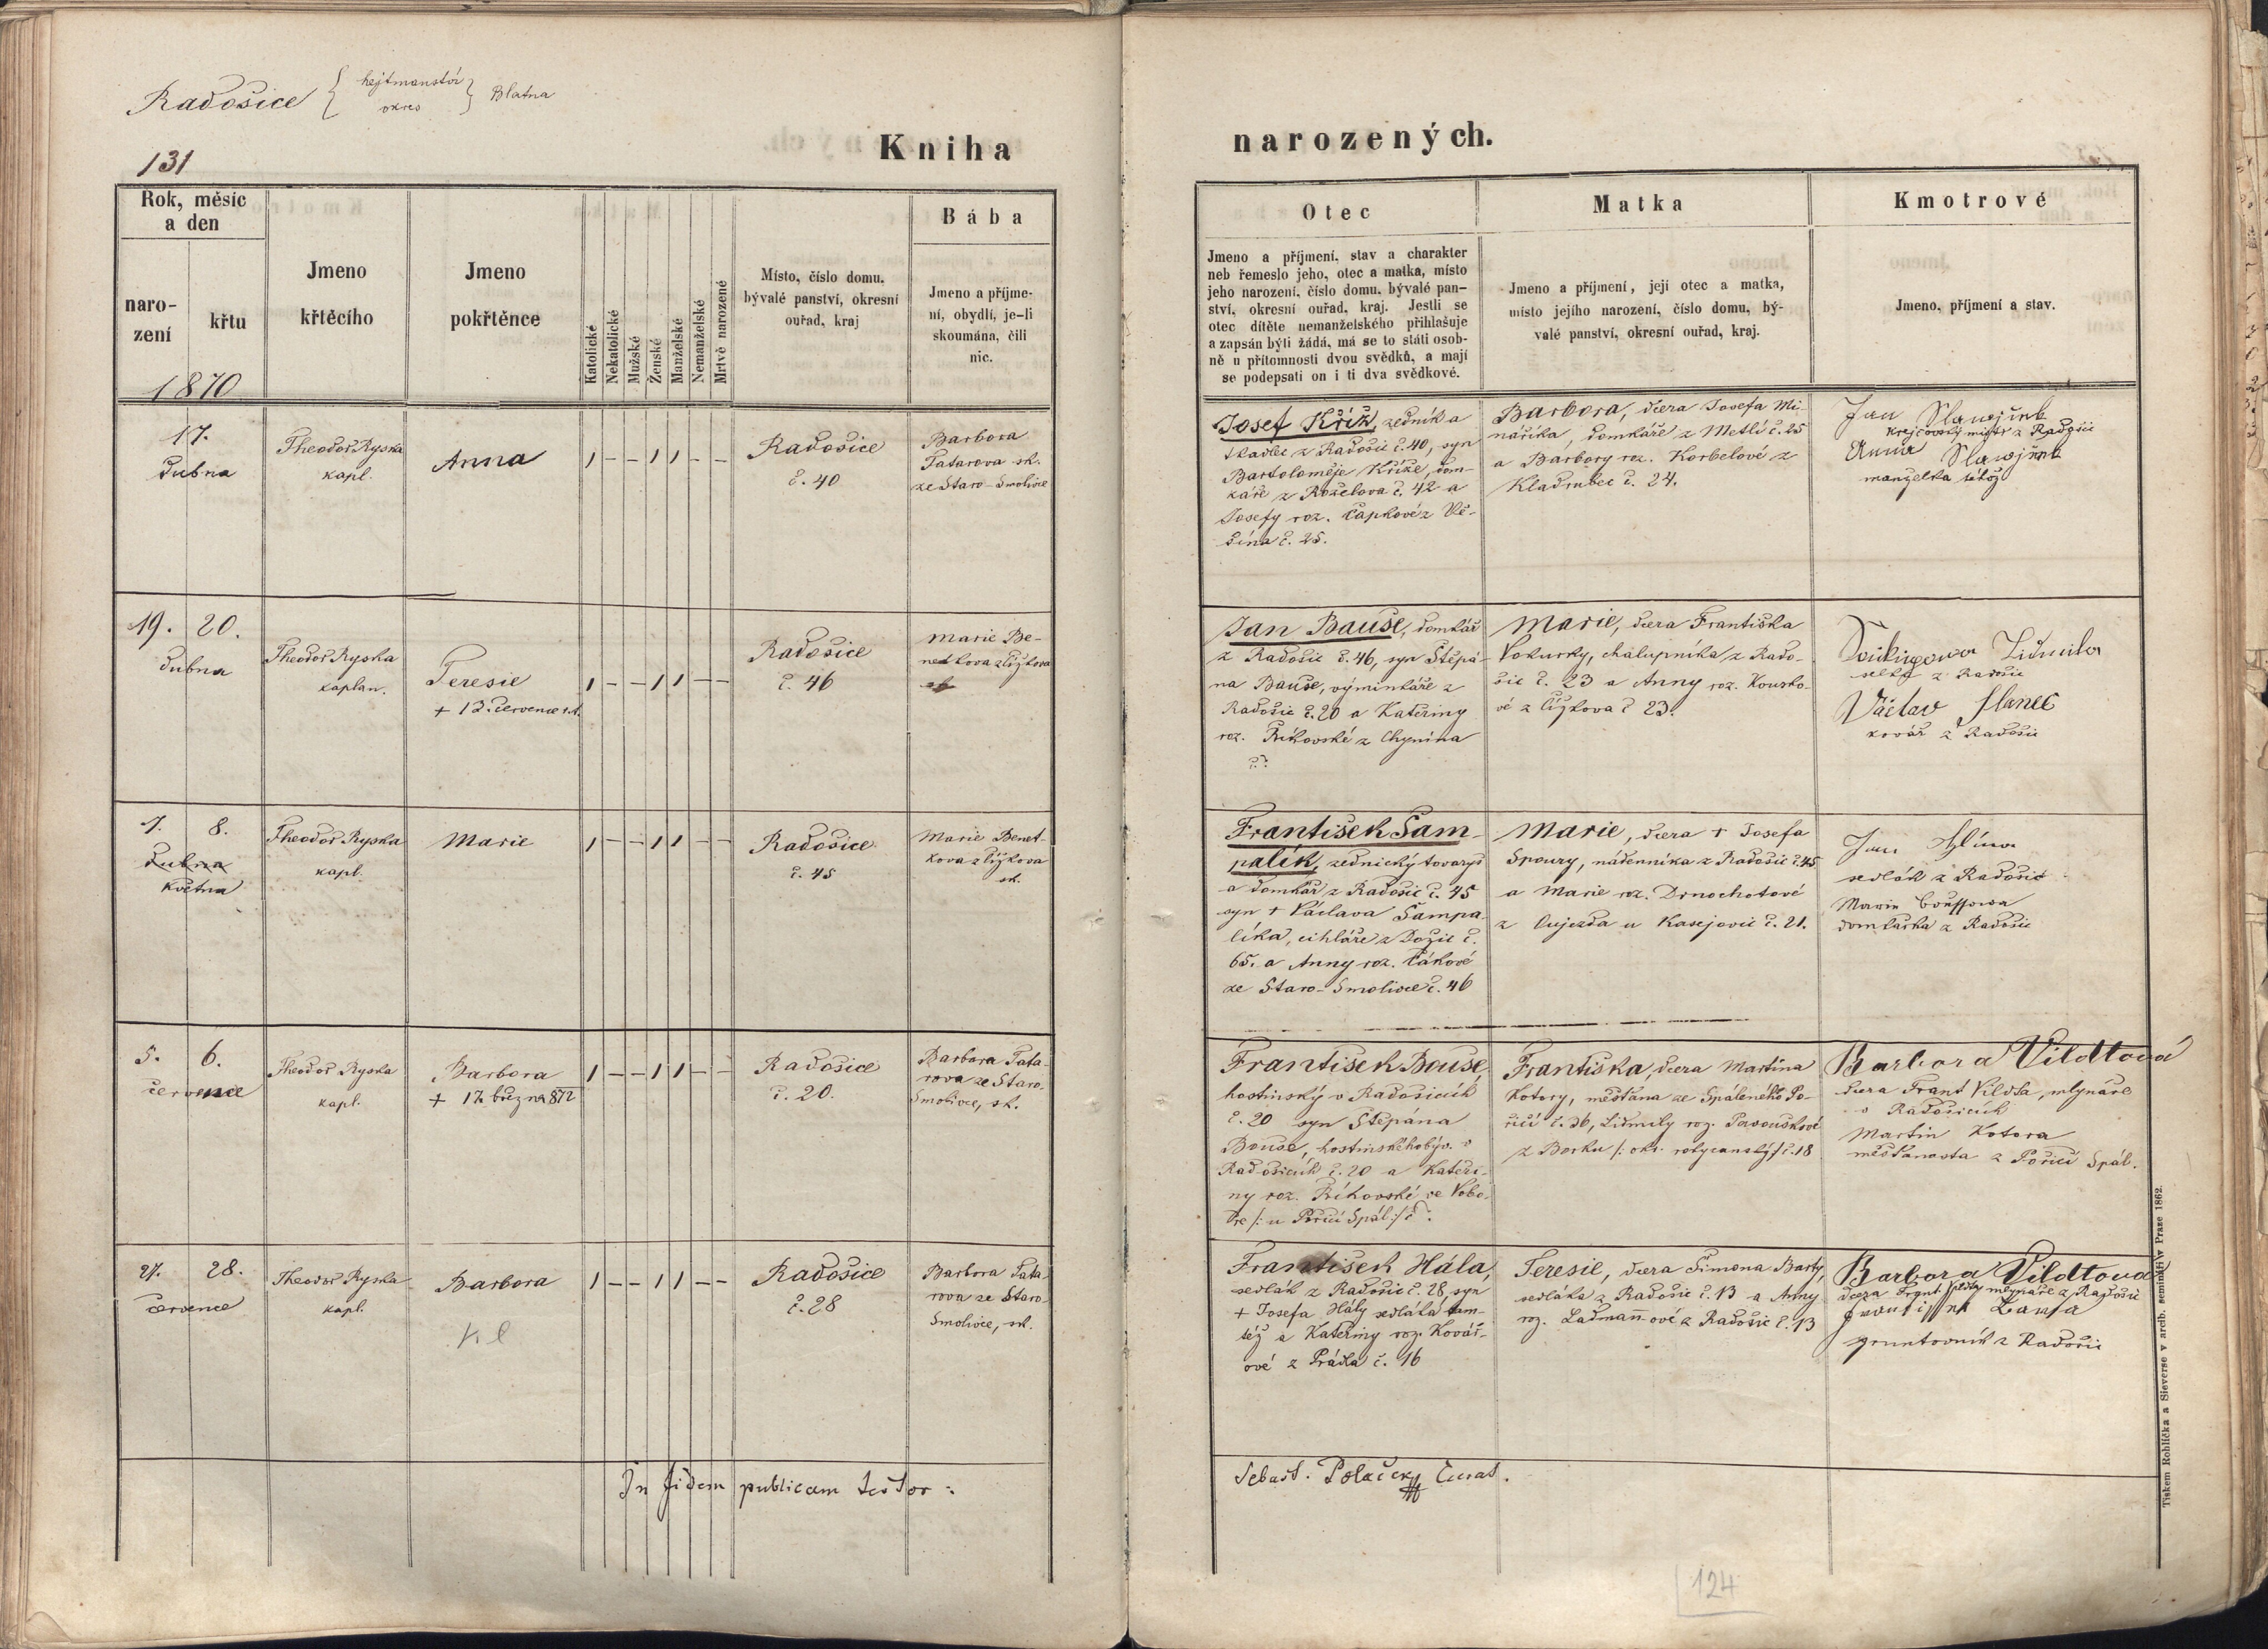 Radošice { hejtmanství
okres } Blatna
131
Kniha
narozených.
Rok, měsíc
a den
naro-
zení
křtu
1870
Jmeno
křtěcího
Jmeno
pokřtěnce
Katolické
Nekatolické
Mužské
Ženské
Manželské
Nemanželské
Mrtvě narozené
Místo, číslo domu,
bývalé panství, okresní
ouřad, kraj
Bába
Jmeno a příjme-
ní, obydlí, je-li
skoumána, čili
nic.
Otec
Jmeno a příjmení, stav a charakter
neb řemeslo jeho, otec a matka, místo
jeho narození, číslo domu, bývalé pan-
ství, okresní ouřad, kraj. Jestli se
otec dítěte nemanželského přihlašuje
a zapsán býti žádá, má se to státi osob-
ně u přítomnosti dvou svědků, a mají
se podepsati on i ti dva svědkové.
Matka
Jmeno a příjmení, její otec a matka,
místo jejího narození, číslo domu, bý-
valé panství, okresní ouřad, kraj.
Kmotrové
Jmeno, příjmení a stav.
17.
dubna
Theodor Ryska
kapl.
Anna
1 – – 1 1 – –
Radošice
č. 40
Barbora
Tatarova sk.
ze Staro-Smolivce
Josef Kříž, zedník a
tkadlec z Radošic č. 40, syn
Bartoloměje Kříže, dom-
káře z Roželova č. 42 a
Josefy roz. Čapkové z Vě-
šína č. 25.
Barbora, dcera Josefa Mi-
nářika, domkáře z Metlí č. 25
a Barbory roz. Korbelové z
Kladrubec č. 24.
Jan
krejčovský mistr z Radošic
Anna
manželka téhož
19. 20.
dubna
Theodor Ryska
kaplan.
Teresie
+ 12. července t.r.
1 – – 1 1 – –
Radošice
č. 46
Marie Be-
netkova z Čížkova
sk.
Jan Bauše, domkář
z Radošic č. 46, syn Štěpá-
na Bauše, výminkáře z
Radošic č. 20 a Kateřiny
roz. Říhovské z Chynína
č?
Marie, dcera Františka
Vokurky, chalupníka z Rado-
šic č. 23 a Anny roz. Kourko-
vé z Čížkova č 23.
Lidmila
selka z Radošic
Václav Slanec
kovář z Radošic
7. 8.
dubna
května
Theodor Ryska
kapl.
Marie
1 – – 1 1 – –
Radošice
č. 45
Marie Benet-
kova z Čížkova
sk.
František Šam-
palík, zednický tovaryš
a domkář z Radošic č. 45
syn + Václava Šampa-
líka, cihláře z Dožic č.
65. a Anny roz. Cákové
ze Staro-Smolivce č. 46
Marie, dcera + Josefa
Spoury, nádenníka z Radošic č. 45
a Marie roz. Drnochotové
z Oujezda u Kasejovic č. 21.
Jan Hlína
sedlák z Radošic
Marie Boušsowa
domkářka z Radošic
5. 6.
července
Theodor Ryska
kapl.
Barbora
+ 17. března 872
1 – – 1 1 – –
Radošice
č. 20.
Barbora Tata-
rova ze Staro-
Smolivce, sk.
František Bouše,
hostinský v Radošicích
č. 20 syn Štěpána
Bouše, hostinského býv. v
Radošicích č. 20 a Kateři-
ny roz. Říhovské ze Vobo-
ře /: u Poříčí Spál :/ č?
Františka, dcera Martina
Kotory, měšťana ze Spáleného Po-
říčí č. 36, Lidmily roz. Pavouškové
z Borku /: okr. rokycanský :/ č. 18
Barbora Vildtová
dcera Frant Vildta, mlynáře
v Radošicích
Martin Kotora
měšťanosta z Poříčí Spál.
27. 28.
července
Theodor Ryska
kapl.
Barbora
1 – – 1 1 – –
Radošice
č. 28
Barbora Tata-
rova ze Staro-
Smolivce, sk.
František Hála,
sedlák z Radošic č. 28, syn
+ Josefa Hály sedláka tam-
též a Kateřiny roz. Kovář-
ové z Prádla č. 16
Teresie, dcera Šimona Barty,
sedláka z Radošic č. 13 a Anny
roz. Ladmannové z Radošic č. 13
Barbora Vildtová
dcera Frant Vildta mlynáře z Radošic
gruntovník z Radošic
In fidem publicam testor:
Sebast. Polaček Curat.
124
Tiskem Rohlíčka a Sieverse v arcib. semináři v Praze 1862.